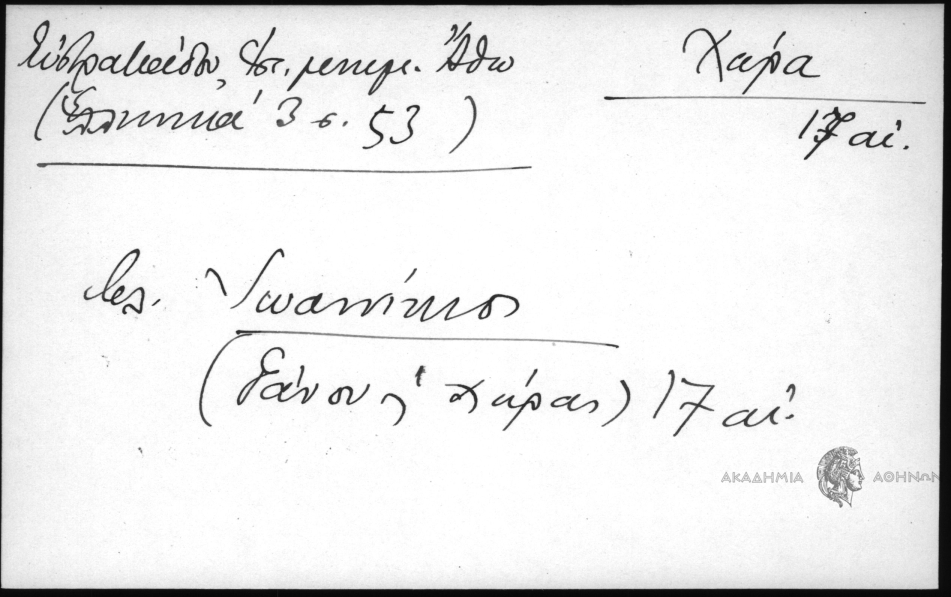 Εὐστρατιάδου, Ἱστ. μνημ. Ἄθω
(Ἑλληνικά 3 σ. 53)
Χώρα
17 αἰ.
βλ. Ἰωαννίκιος
(Γάνου καὶ Χώρας) 17 αἰ.
ΑΚΑΔΗΜΙΑ ΑΘΗΝΩΝ